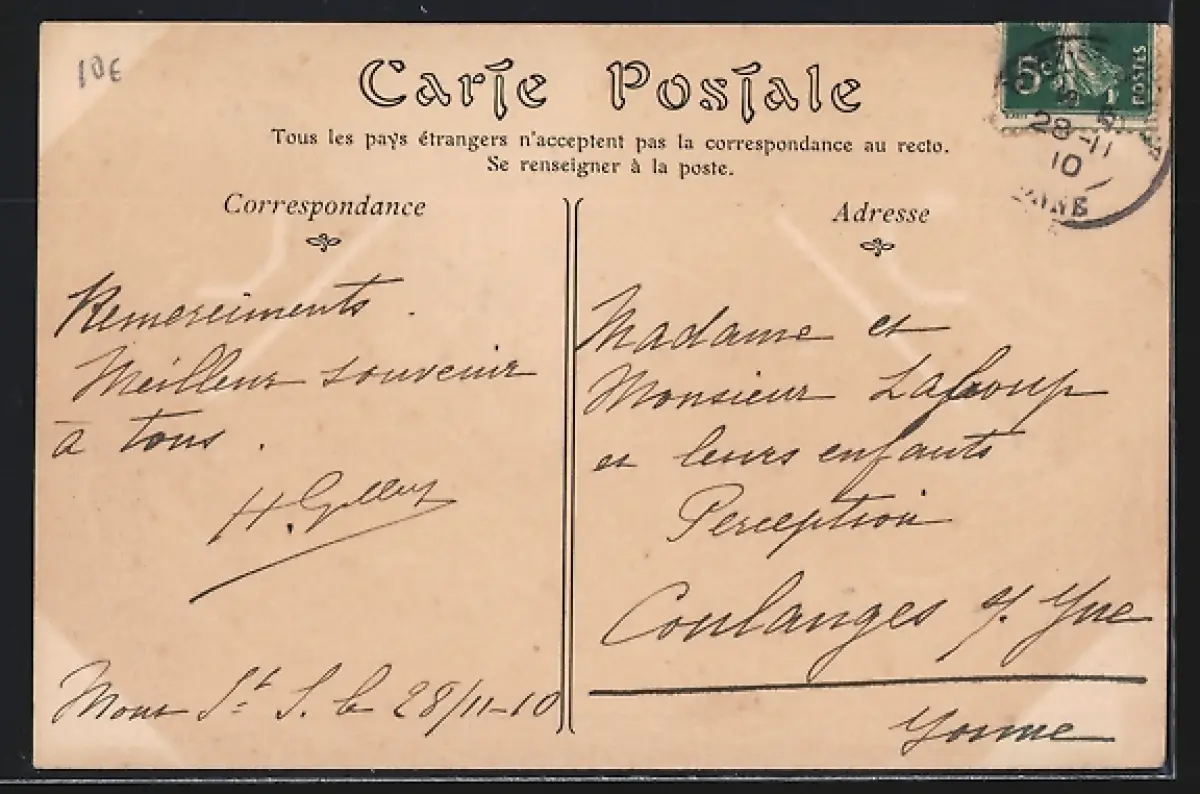 10€
Carte Postale
Tous les pays étrangers n'acceptent pas la correspondance au recto.
Se renseigner à la poste.
5c
POSTES
28-11
10
Correspondance
Adresse
Remerciments.
Meilleur souvenir
à tous.
Mont St S. le 28/11-10
Madame et
Monsieur
et leurs enfants
Perception
Coulanges s/ Yne
Yonne